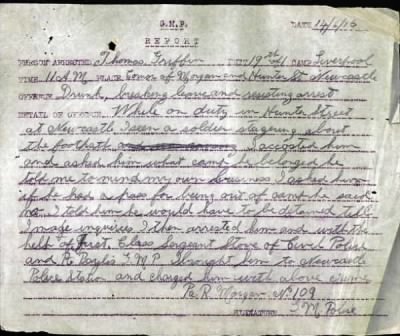 G.M.P. DATE 14/6/16
REPORT
PERSON ARRESTED Thomas Griffin UNIT 19th CAMP Liverpool
TIME 11 A.M PLACE Corner of Morgan and Hunter St Newcastle
OFFENCE Drunk, breaking leave and resisting arrest
DETAIL OF OFFENCE. While on duty in Hunter Street
at Newcastle I seen a soldier stagering about
the footpath I accepted him
and asked him what camp he belonged he
told me to mind my own business I asked him
if he had a pass for being out of camp he said
no. I told him he would have to be detained till
I made inquiries I then arrested him and with the
help of First Class Sergeant Stove of Civil Police
and Pte G.M.P. I brought him to Newcastle
Police Station and charged him with above crime
Pte R. Morgan No 109
SIGNATURE G.M. Police